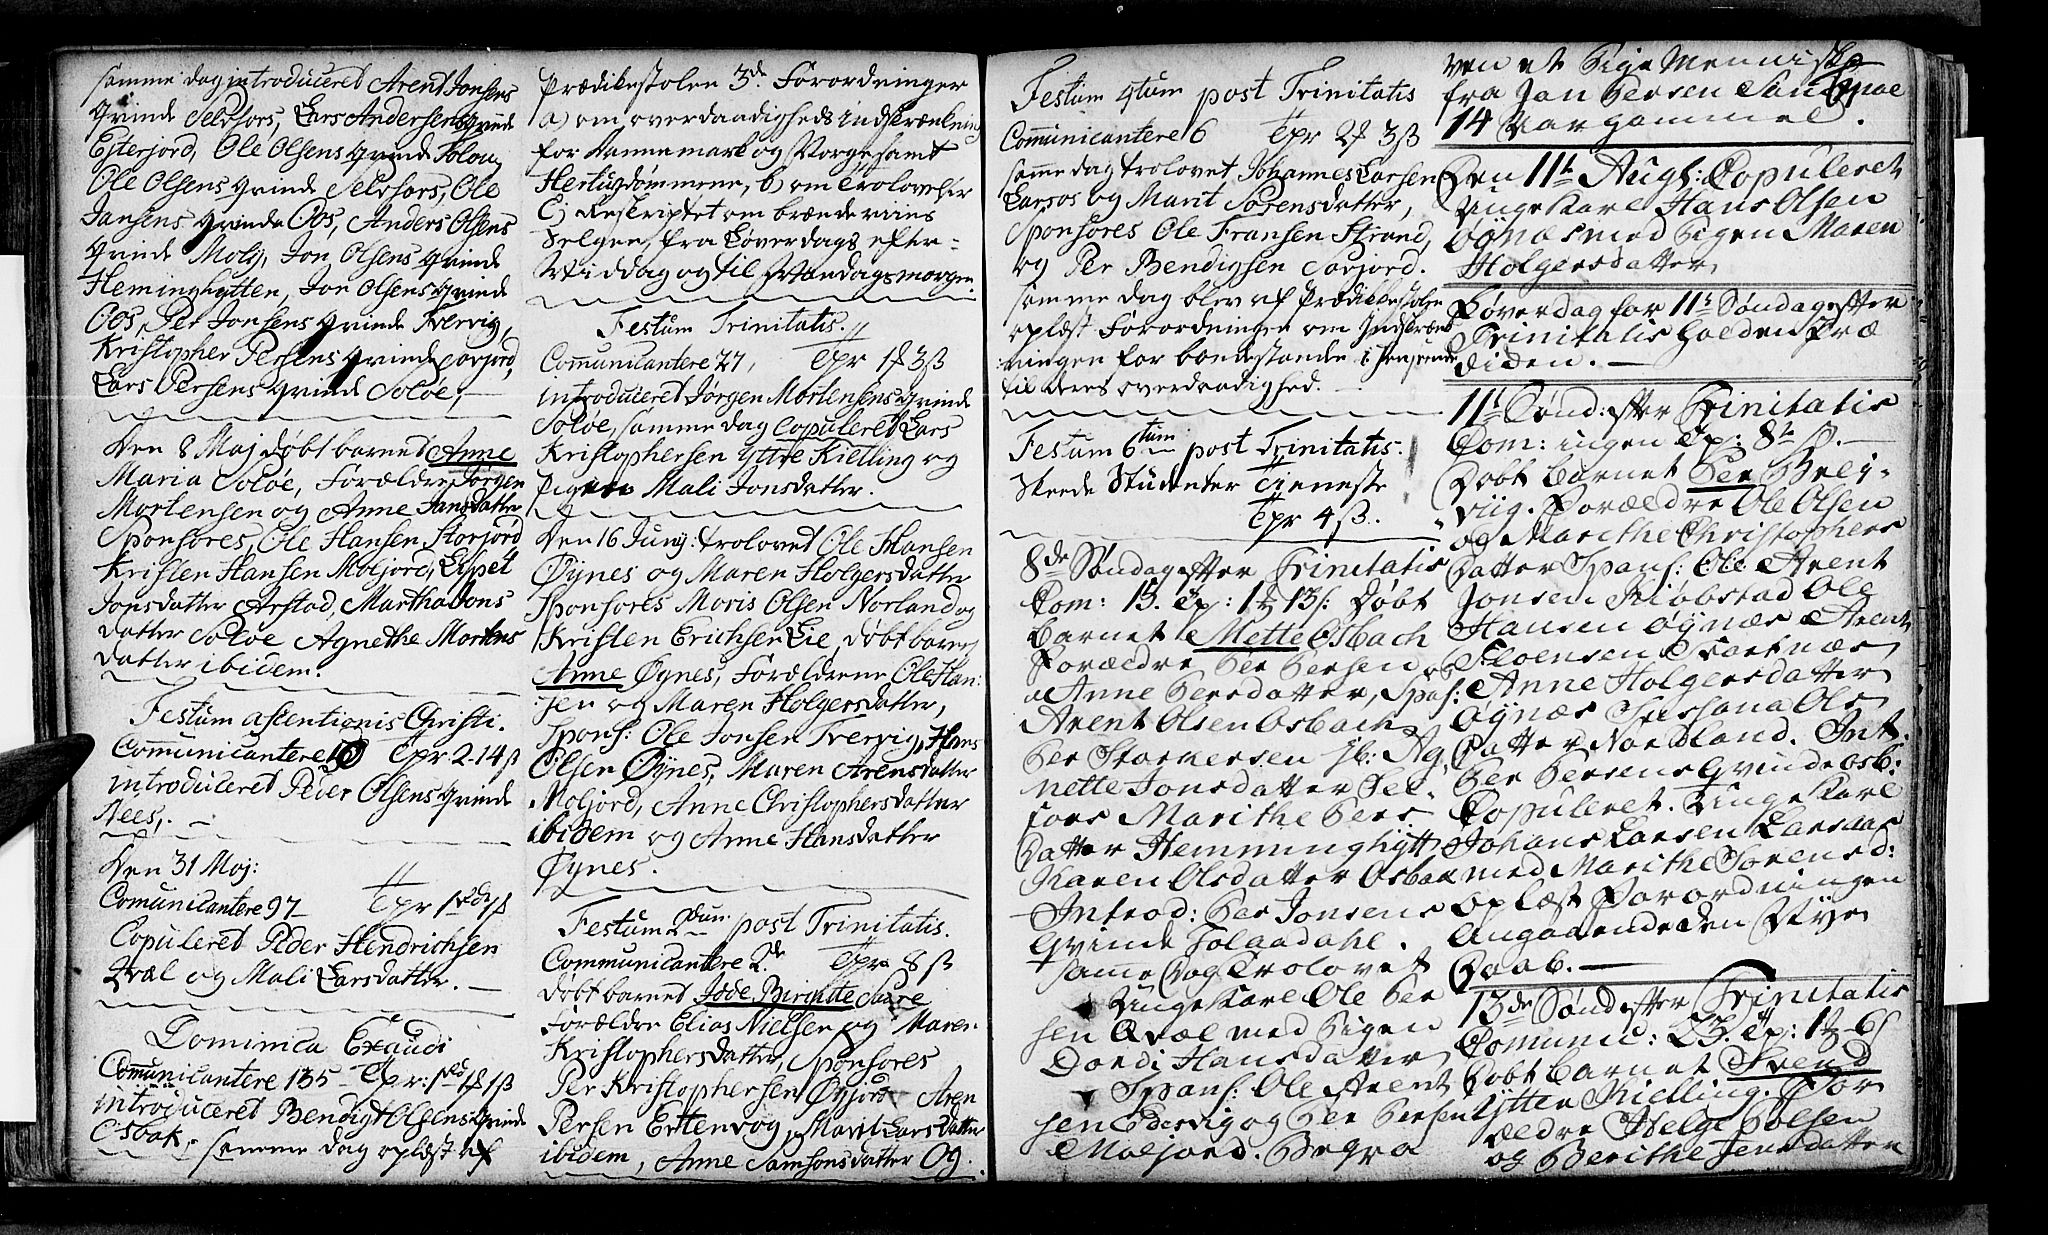 samme dag introduceret Arent Jonsens
qvinde Selsfors, Lars Andersens qvinde
Esterjord, Ole Olsens qvinde
Ole Olsens qvinde Selsfors, Ole
Jansens qvinde Oos, Anders Olsens
qvinde Molj, Jon Olsens qvinde
Heminghytten, Jon Olsens qvinde
Oos, Per Jonsens qvinde Tvervig,
Kristopher Persens qvinde Sorjord,
Lars Persens qvinde Soløe,
Den 8 Maj døbt barnet Anne
Maria Soløe, Forældre Jørgen
Mortensen og Anne Jansdatter
Sponsores, Ole Hansen Storjord
Kristen Hansen Moljord, Lispet
Jonsdatter Arstad, Martha Jons
datter Soløe Agnethe Mortens
datter ibidem.
Festum ascentionis Christi.
Communicantere Tpr 2-14 ß
introduceret Peder Olsens qvinde
Nees,
Den 31 Maj:
Comunicantere 97 Tpr
Copuleret Peder Hendrichsen
Qvæl og Mali Larsdatter.
Dominica Exaudi
Comunicantere 135 Tpr:
introduceret Bendigt Olsens qvinde
Osbak, samme dag oplæst af
Prædikestolen 3de Forordninger
a) om overdaadigheds indskrænkning
for Dannemark og Norge samt
Hertugdømmene, b) om Trolovelser
c) Reskriptet om brændeviins
Selgen, fra Løverdags efter-
Middag og til Mandags morgen.
Festum Trinitatis.
Communicantere 27, Tpr 1 3ß
introduceret Jørgen Mortensens qvinde
Soløe, samme dag Copuleret Lars
Kristophersen Yttre Kielling og
Pigen Mali Jonsdatter.
Den 16 Junj: trolovet Ole Hansen
Øynes og Maren Holgersdatter
Sponsores Moris Olsen Norland og
Kristen Erichsen Lie, døbt barnet
Anne Øynes, Forældrene Ole Han:
sen og Maren Holgersdatter,
Spons: Ole Jonsen Tvervig, Hans
Olsen Øynes, Maren Arensdatter
Moljord, Anne Christophersdatter
ibidem og Anne Hansdatter
Øynes.
Festum 2dum post Trinitatis.
Communicantere 2de Tpr 8 ß
døbt barnet Jode Birgitte Sture
Forældre Elias Nielsen og Maren
Kristophersdatter, Sponsores
Per Kristophersen Øxjord Aren
Persen Ertenvog, Marit Larsdatter
ibidem, Anne Samsonsdatter Og
Festum 4tum post Trinitatis
Comunicantere 6 Tpr 2 3ß
samme dag trolovet Johannes Larsen
Larsos og Marit Sørensdatter,
Sponsores Ole Fransen Strand,
og Per Bendigsen Sorjord.
samme dag blev af Prædikestolen
oplæst Forordningen om Indskrænk
ningen for bondestanden i
til deres overdaadighed.
Festum 6tum post Trinitatis.
Skeede Studenter Tieneste
Tpr 4 ß.
8de Søndag efter Trinitatis
Com: 13. Tp: 1 13 s: Døbt
Barnet Mette Osbach
Forældre Per Persen og
Anne Persdatter, Spos:
Arent Olsen Osbach
Per Storkersen ib: Ag
nette Jonsdatter Sel
fors Marithe Pers
Datter Hemminghytt
Karen Olsdatter Osbak
Introd: Per Jonsens
Qvinde Tolaadahl.
same Dag Trolovet
Unge Karl Ole Per
sen Qvæl med Pigen
Dordi Hansdatter
Spons: Ole Arent
sen Edervig og Per Persen
Moljord. Begra
ven et Pige Menniske
fra Jon Persen Sandmoe
14 Aar gammel.
Den 11te Augt: Copuleret
Unge Karl Hans Olsen
Øynæs med Pigen Maren
Holgersdatter
Løverdag for 11te Søndag efter
Trinitatis holden Præ
diken.
11te Sønd: efter Trinitatis
Com: ingen Tp: 8te ß.
Døbt Barnet Per Brey-
viig. Forældre Ole Olsen
og Marithe Christophers
Datter Spons: Ole Arent
Jonsen Kiøbstad Ole
Hansen Øynæs Arent
Floensen Svartnæs
Anne Holgersdatter
Øynæs Susanna Ols
Datter Nordland. Int.
Per Persens Qvinde Osb:
Copuleret. Unge Karl
Johans Larsen Larsaas
med Marithe Sørensd:
Oplæst Forordningen
Angaaende den Nye
Daab.
13de Sønd efter Trinitatis
Comunic: 23. Tp: 1-6 s
Døbt Barnet Svend
Ytter Kielling. For
ældre Helge Polsen
og Berithe Jensdatter